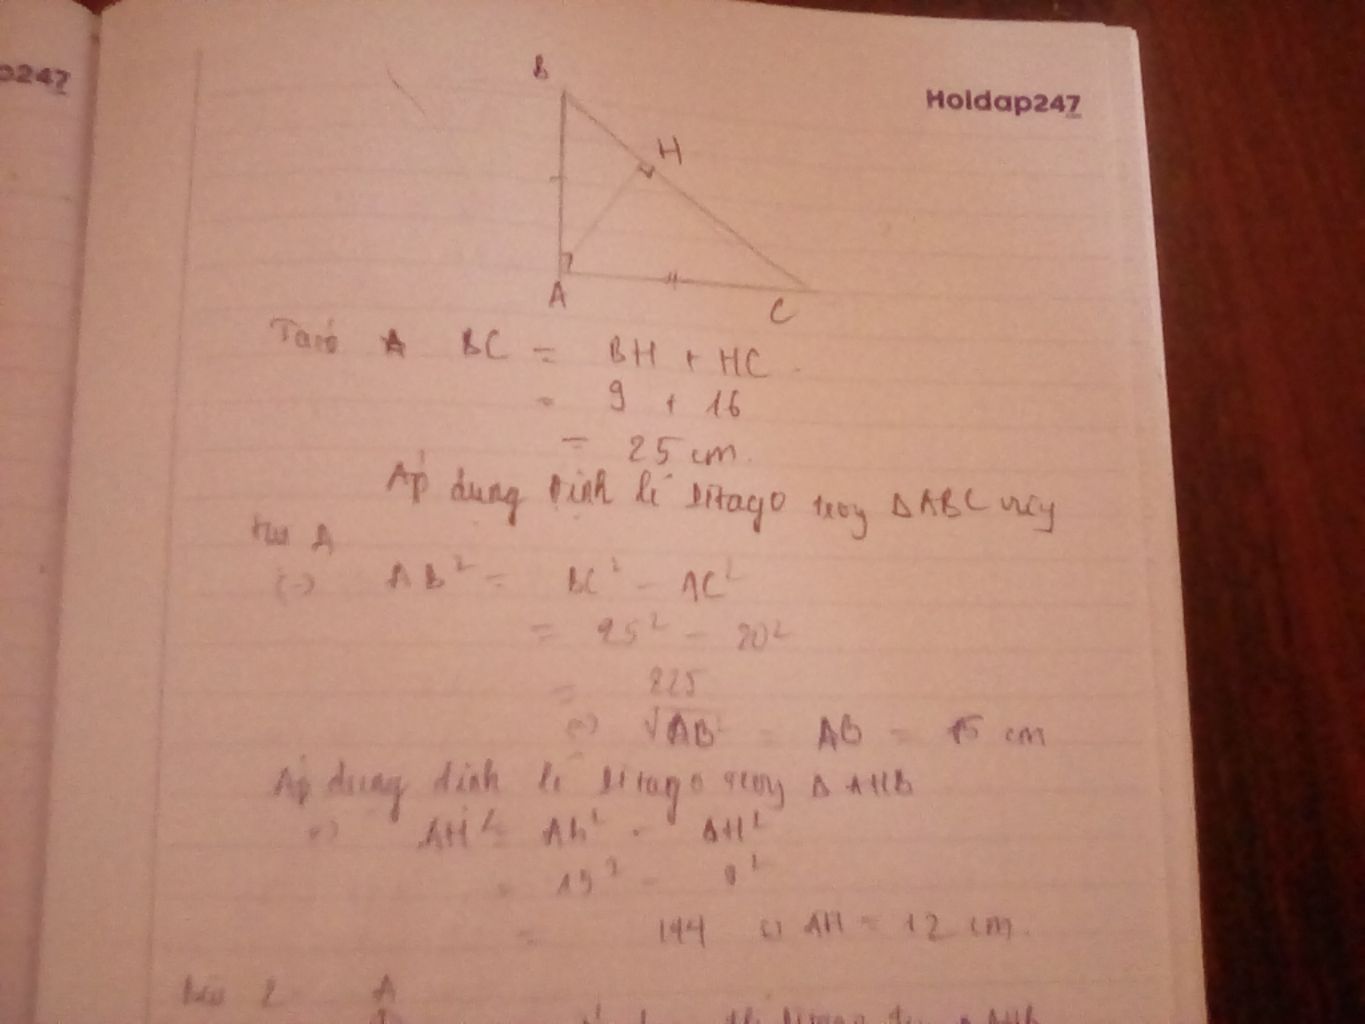 p247
Holdap247
B
H
A
C
Ta có BC = BH + HC
= 9 + 16
= 25 cm.
Áp dụng định lí Pitago trong Δ ABC vuông
tại A
AB² = BC² - AC²
= 25² - 20²
= 225
=) √AB² = AB = 15 cm
Áp dụng định lí Pitago trong Δ AHB
=) AH² = AB² - BH²
= 15² - 9²
= 144 AH = 12 cm.
Bài 2 A